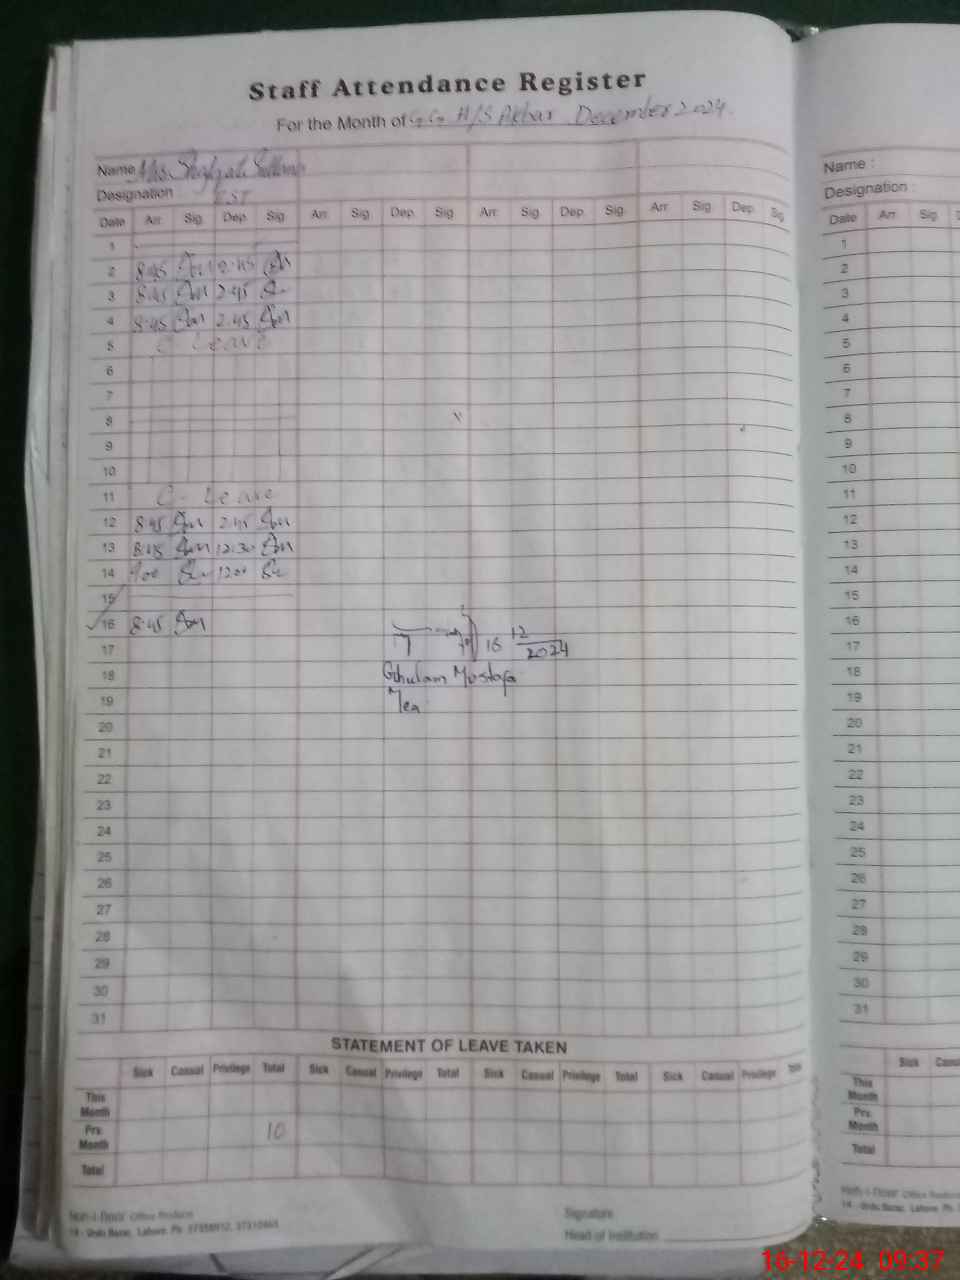 Staff Attendance Register
For the Month of G.G H/S Akbar December 2024.
Name Mrs. Shafqat Sultana
Designation EST
Date Arr. Sig. Dep. Sig. Arr. Sig. Dep. Sig. Arr. Sig. Dep. Sig. Arr. Sig. Dep. Sig.
1
2 8:45 2:45
3 8:45 2:45
4 8:45 2:45
5 C. Leave
6
7
8
9
10
11 C- Leave
12 8:45 2:45
13 8:45 12:30
14 9:00 12:00
15
16 8:45
16 12 2024
17
18 Ghulam Mustafa
19 Mea
20
21
22
23
24
25
26
27
28
29
30
31
STATEMENT OF LEAVE TAKEN
Sick Casual Privilege Total Sick Casual Privilege Total Sick Casual Privilege Total Sick Casual Privilege Total
This Month
Prv. Month 10
Total
Office Products
14 - Urdu Bazar, Lahore. Ph:
Signature
Head of Institution
Name :
Designation :
Date Arr. Sig.
1
2
3
4
5
6
7
8
9
10
11
12
13
14
15
16
17
18
19
20
21
22
23
24
25
26
27
28
29
30
31
Sick
This Month
Prv. Month
Total
Office
14 - Urdu Bazar, Lahore
16-12-24 09:37